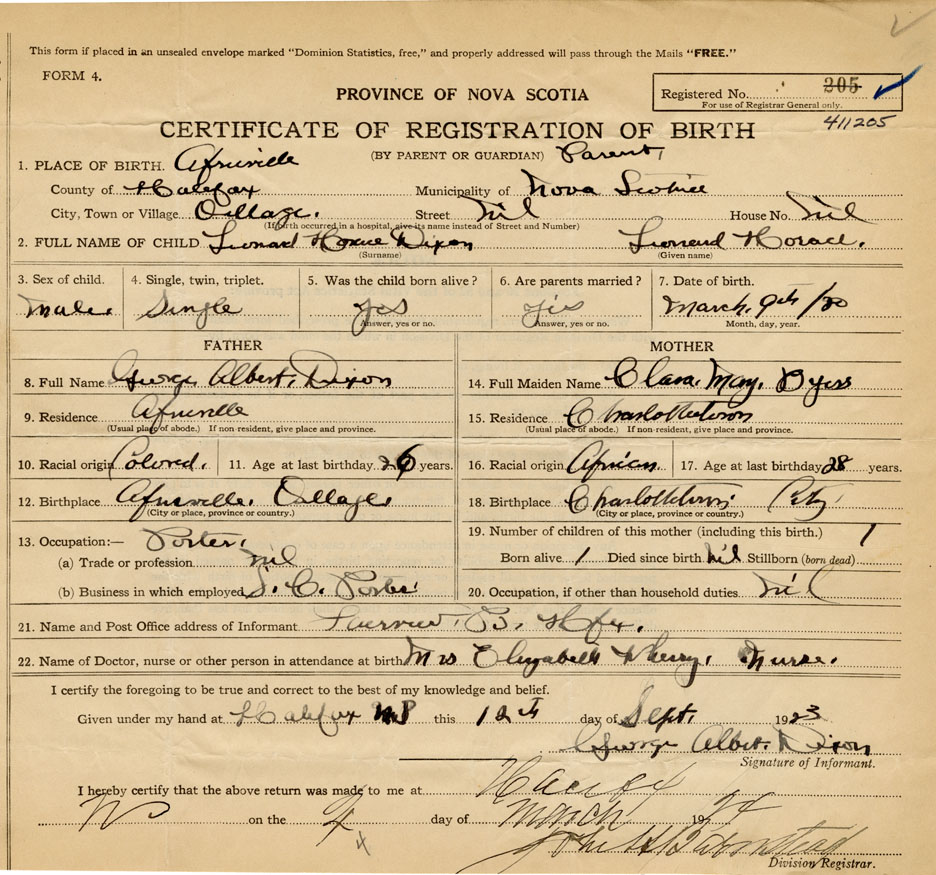 This form if placed in an unsealed envelope marked "Dominion Statistics, free," and properly addressed will pass through the Mails "FREE."
FORM 4.
Registered No. 205
For use of Registrar General only.
PROVINCE OF NOVA SCOTIA
411205
CERTIFICATE OF REGISTRATION OF BIRTH
(BY PARENT OR GUARDIAN) Parent,
1. PLACE OF BIRTH. Africville
County of Halifax Municipality of Nova Scotia
City, Town or Village Village. Street Nil House No. Nil
(If birth occurred in a hospital, give its name instead of Street and Number)
2. FULL NAME OF CHILD Leonard Horace Dixon Leonard Horace.
(Surname) (Given name)
3. Sex of child. 4. Single, twin, triplet. 5. Was the child born alive? 6. Are parents married? 7. Date of birth.
Male. Single yes yes March, 9th /20
Answer, yes or no. Answer, yes or no. Month, day, year.
FATHER MOTHER
8. Full Name George Albert. Dixon 14. Full Maiden Name Clara. May.
9. Residence Africville 15. Residence Charlottetown
(Usual place of abode.) If non-resident, give place and province. (Usual place of abode.) If non-resident, give place and province.
10. Racial origin Colored. 11. Age at last birthday 26 years. 16. Racial origin African 17. Age at last birthday 28 years.
12. Birthplace Africville. Village 18. Birthplace Charlottetown City
(City or place, province or country.) (City or place, province or country.)
13. Occupation:— Porter. 19. Number of children of this mother (including this birth.) 1
(a) Trade or profession nil Born alive 1 Died since birth Nil Stillborn (born dead)
(b) Business in which employed S. C. Porter 20. Occupation, if other than household duties. Nil
21. Name and Post Office address of Informant Fairview. Hfx.
22. Name of Doctor, nurse or other person in attendance at birth Mrs Elizabeth Nurse.
I certify the foregoing to be true and correct to the best of my knowledge and belief.
Given under my hand at Halifax this 12th day of Sept. 1923
George Albert. Dixon
Signature of Informant.
I hereby certify that the above return was made to me at Halifax
NS on the 4 day of March 1924
4
Division Registrar.